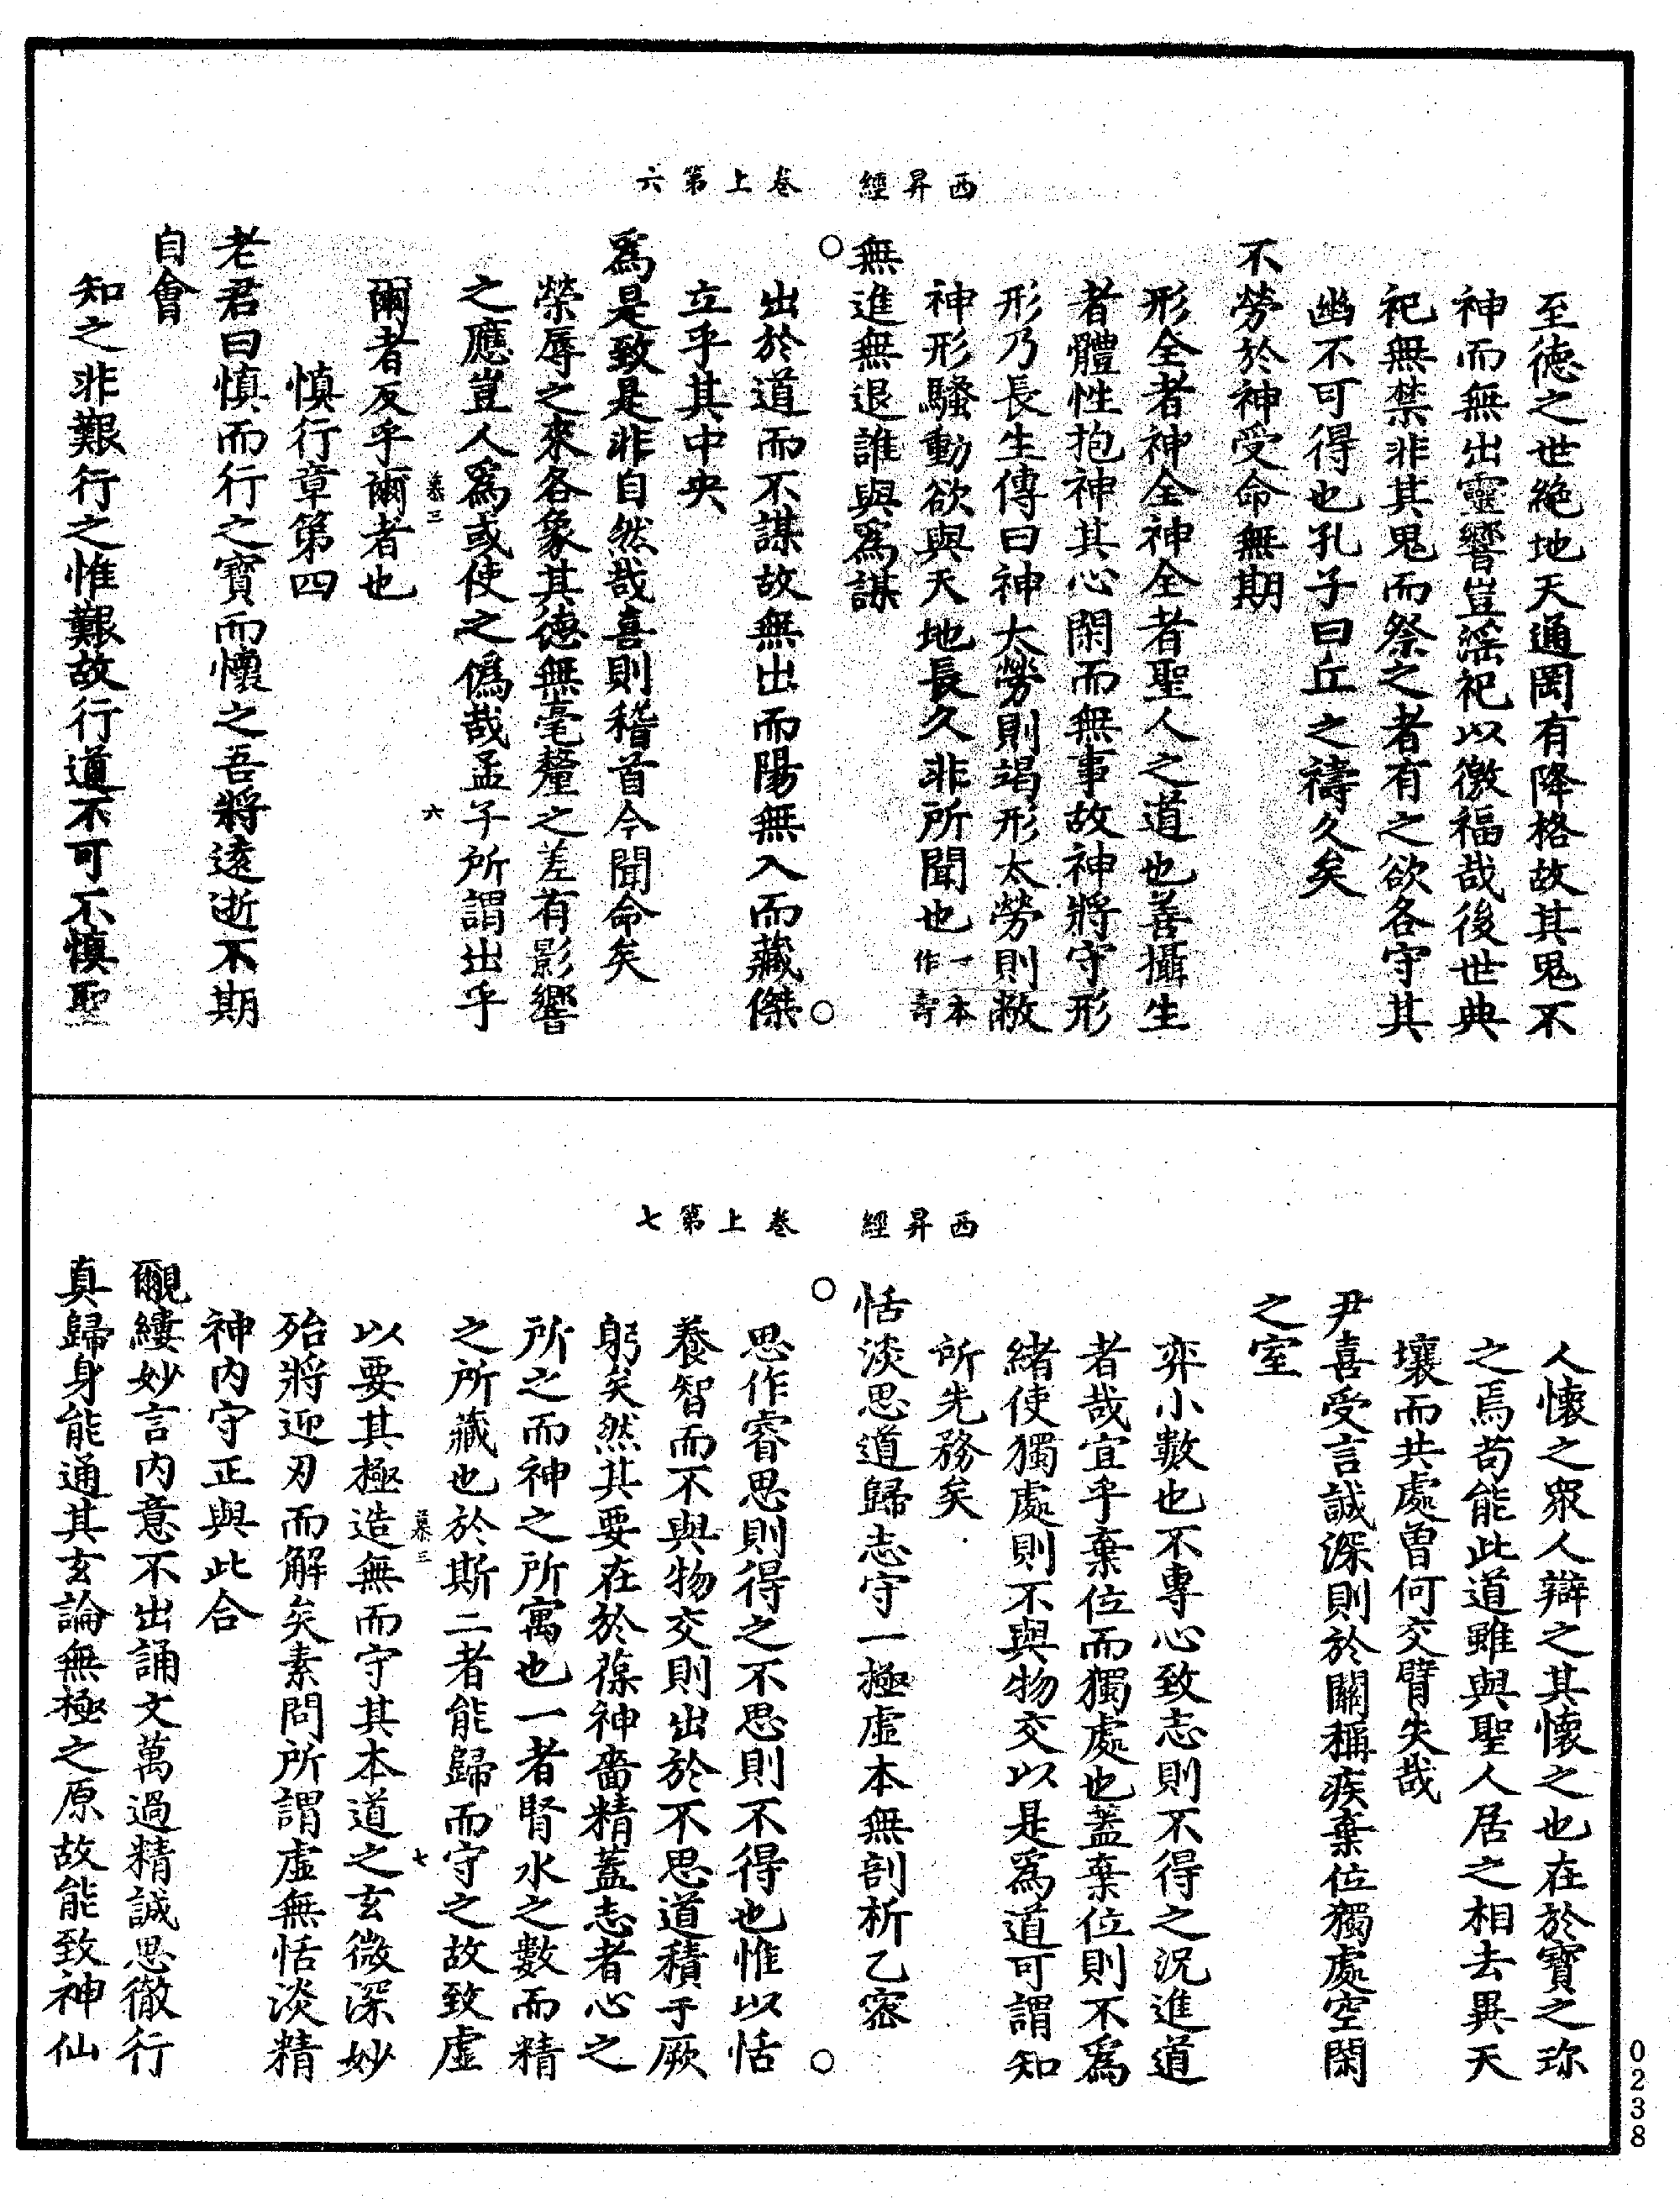 西昇經　卷上第六
至德之世絶地天通罔有降格故其鬼不
神而無出靈響豈滛祀以徼福哉後世典
祀無禁非其鬼而祭之者有之欲各守其
幽不可得也孔子曰丘之禱久矣
不勞於神受命無期
形全者神全神全者聖人之道也善攝生
者體性抱神其心閑而無事故神將守形
形乃長生傳曰神太勞則竭形太勞則敝
神形騷動欲與天地長久非所聞也一本作壽
無進無退誰與爲謀
出於道而不謀故無出而陽無入而藏傑
立乎其中央
爲是致是非自然哉喜則稽首今聞命矣
榮辱之來各象其德無毫釐之差有影響
之應豈人爲或使之僞哉孟子所謂出乎
慕三　六
爾者反乎爾者也
慎行章第四
老君曰慎而行之寶而懷之吾將遠逝不期
自會
知之非艱行之惟艱故行道不可不慎聖
西昇經　卷上第七
人懷之衆人辯之其懷之也在於寶之珎
之焉苟能此道雖與聖人居之相去異天
壤而共處曽何交臂失哉
尹喜受言誠深則於關稱疾棄位獨處空閑
之室
弈小數也不專心致志則不得之況進道
者哉宜乎棄位而獨處也蓋棄位則不爲
緒使獨處則不與物交以是爲道可謂知
所先務矣
恬淡思道歸志守一極虛本無剖析乙密
思作睿思則得之不思則不得也惟以恬
養智而不與物交則出於不思道積于厥
躬矣然其要在於葆神嗇精蓋志者心之
所之而神之所寓也一者腎水之數而精
之所藏也於斯二者能歸而守之故致虛
慕三　七
以要其極造無而守其本道之玄微深妙
殆將迎刃而解矣素問所謂虛無恬淡精
神内守正與此合
覼縷妙言内意不出誦文萬過精誠思徹行
真歸身能通其玄論無極之原故能致神仙
0238